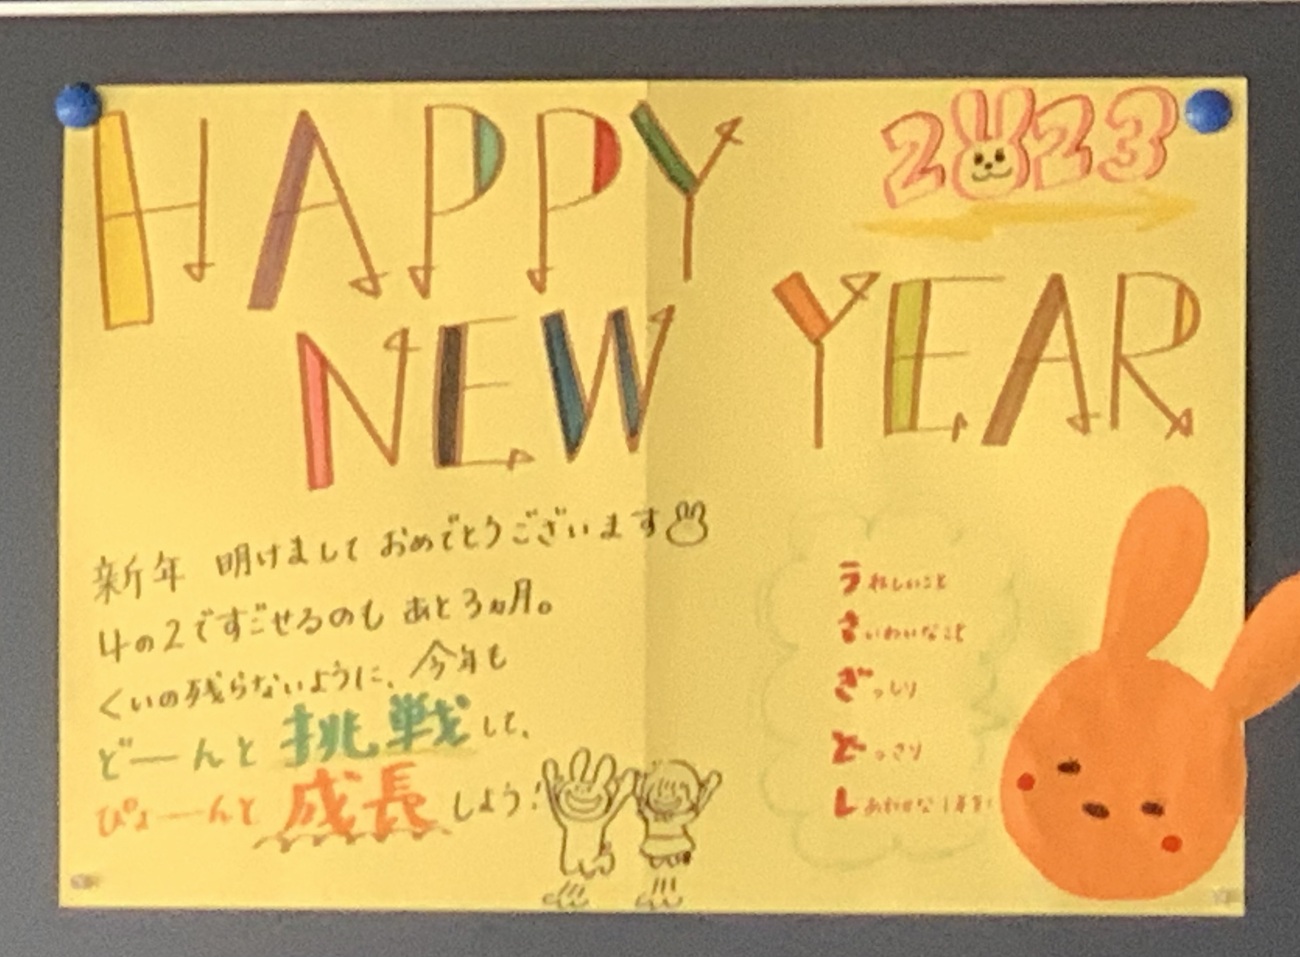 HAPPY
2023
NEW YEAR
新年 明けまして おめでとうございます
4の2ですごせるのも あと3ヵ月。
くいの残らないように、今年も
どーんと 挑戦 して、
ぴょーんと 成長 しよう!
うれしいこと
さいわいなこと
ぎっしり
どっさり
しあわせな1年を!